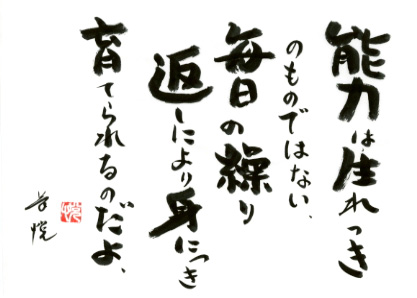 能力は生れつき
のものではない、
毎日の繰り
返しにより身につき
育てられるのだよ、